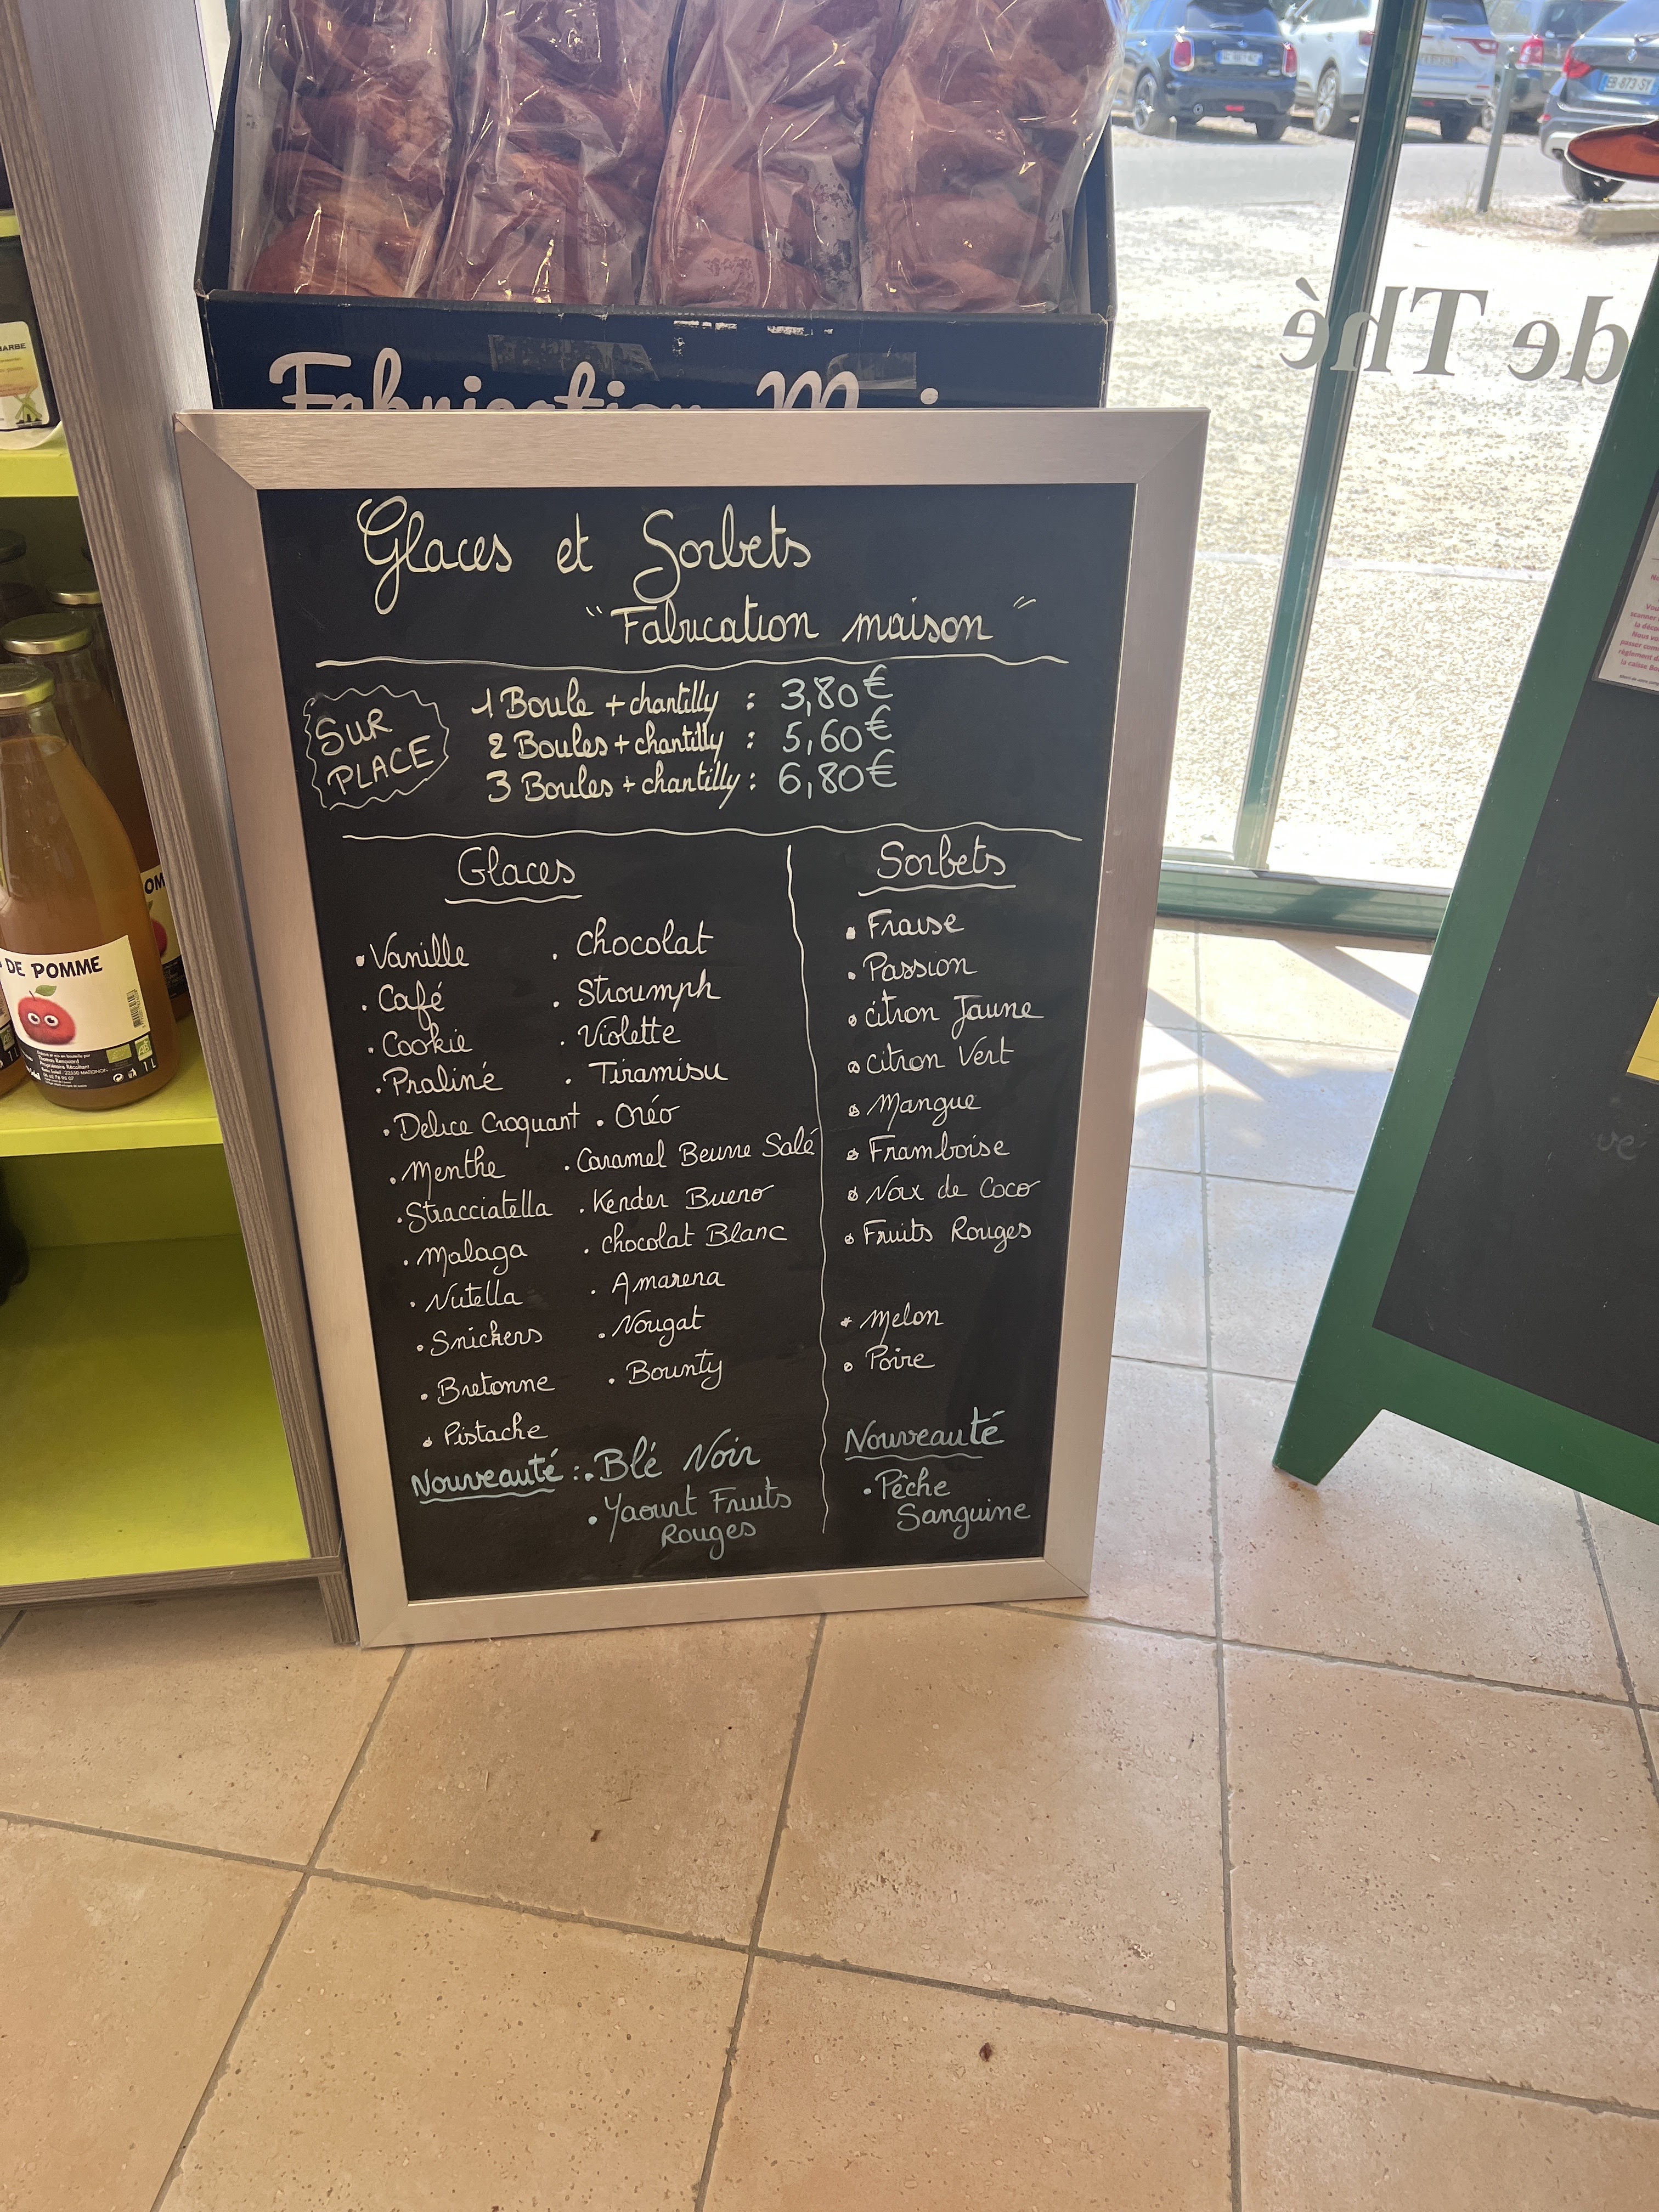 Fabrication Mai
de Thé
Glaces et Sorbets
"Fabrication maison"
SUR
PLACE
1 Boule + chantilly : 3,80€
2 Boules + chantilly : 5,60€
3 Boules + chantilly : 6,80€
Glaces
• Vanille
• Café
• Cookie
• Praliné
• Delice Croquant
• Menthe
• Stracciatella
• Malaga
• Nutella
• Snickers
• Bretonne
• Pistache
• Chocolat
• Stroumph
• Violette
• Tiramisu
• Oréo
• Caramel Beurre Salé
• Kender Bueno
• chocolat Blanc
• Amarena
• Nougat
• Bounty
Nouveauté : • Blé Noir
• Yaourt Fruits
Rouges
Sorbets
• Fraise
• Passion
• citron Jaune
• citron Vert
• Mangue
• Framboise
• Noix de Coco
• Fruits Rouges
• Melon
• Poire
Nouveauté
• Pêche
Sanguine
DE POMME
1 L